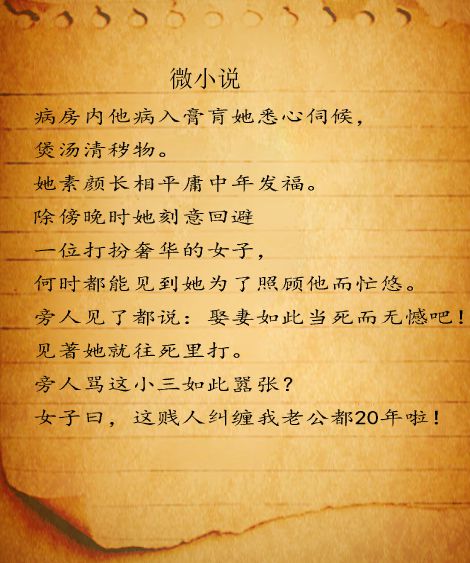 微小说
病房内他病入膏肓她悉心伺候，
煲汤清秽物。
她素颜长相平庸中年发福。
除傍晚时她刻意回避
一位打扮奢华的女子，
何时都能见到她为了照顾他而忙悠。
旁人见了都说：娶妻如此当死而无憾吧！
见著她就往死里打。
旁人骂这小三如此嚣张？
女子曰，这贱人纠缠我老公都20年啦！